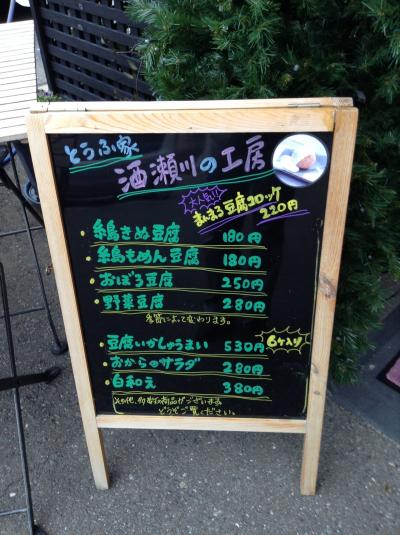 とうふ家
酒瀬川の工房
大人気!!
まんまる豆腐コロッケ
220円
・絹きぬ豆腐 180円
・絹もめん豆腐 180円
・おぼろ豆腐 250円
・野菜豆腐 280円
季節によって変わります。
・豆腐いかしゅうまい 530円 6ケ入り
・おからのサラダ 280円
・白和え 380円
その他、多数の商品がございます。
どうぞご覧ください。